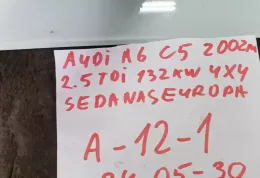 AUDi A6 C5 2002m
2.5TDi 132KW 4X4
SEDANAS EUROPA
A-12-1
24 05-30